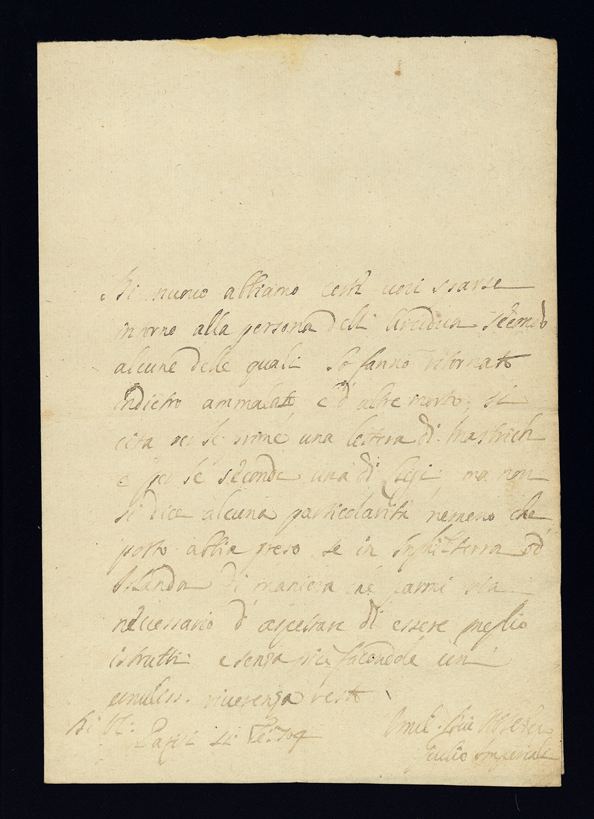 Di nuovo abbiamo certi voci sparse
intorno alla persona dell' Arciduca secondo
alcune delle quali lo fanno ritornato
indietro ammalato, e d'altre morto; si
cita per le prime una lettera di Mastrich
e per le seconde una di ma non
si dice alcuna particolarità nemeno che
porto abbia preso se in Inghilterra od
Olanda di maniera che parmi sia
necessario d' aspettare di essere meglio
istrutti e senza più facendole un
umiliss. riverenza resto
Di VS:
Parigi li 704